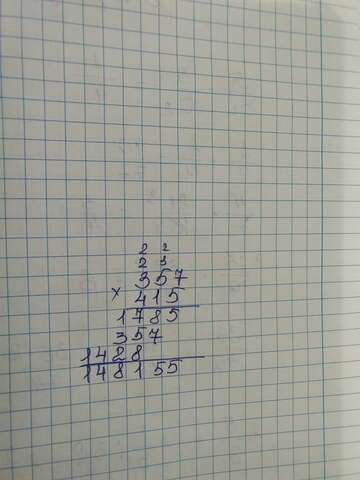 2 2
2 3
357
× 415
1785
357
1428
148155